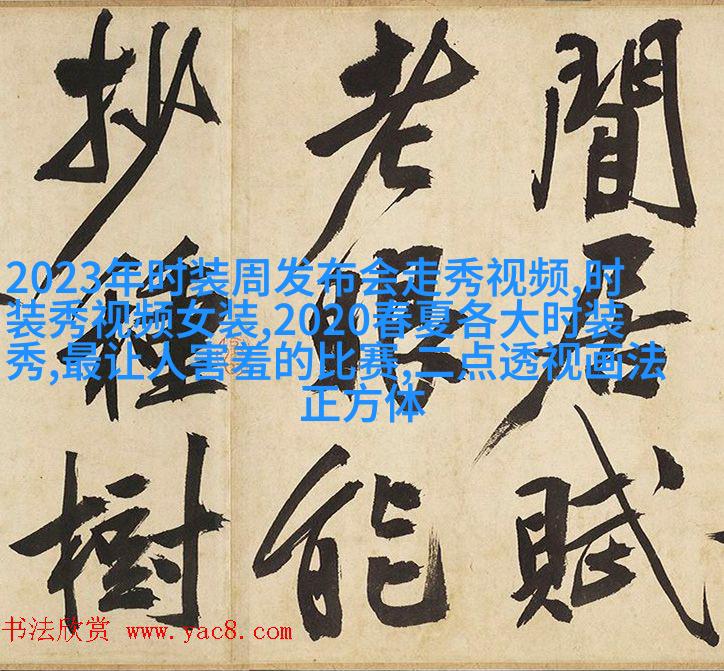 閒居賦
老眼能
抄種樹
2023年时装周发布会走秀视频,时
装秀视频女装,2020春夏各大时装
秀,最让人害羞的比赛,二点透视画法
正方体
书法欣赏 www.yac8.com